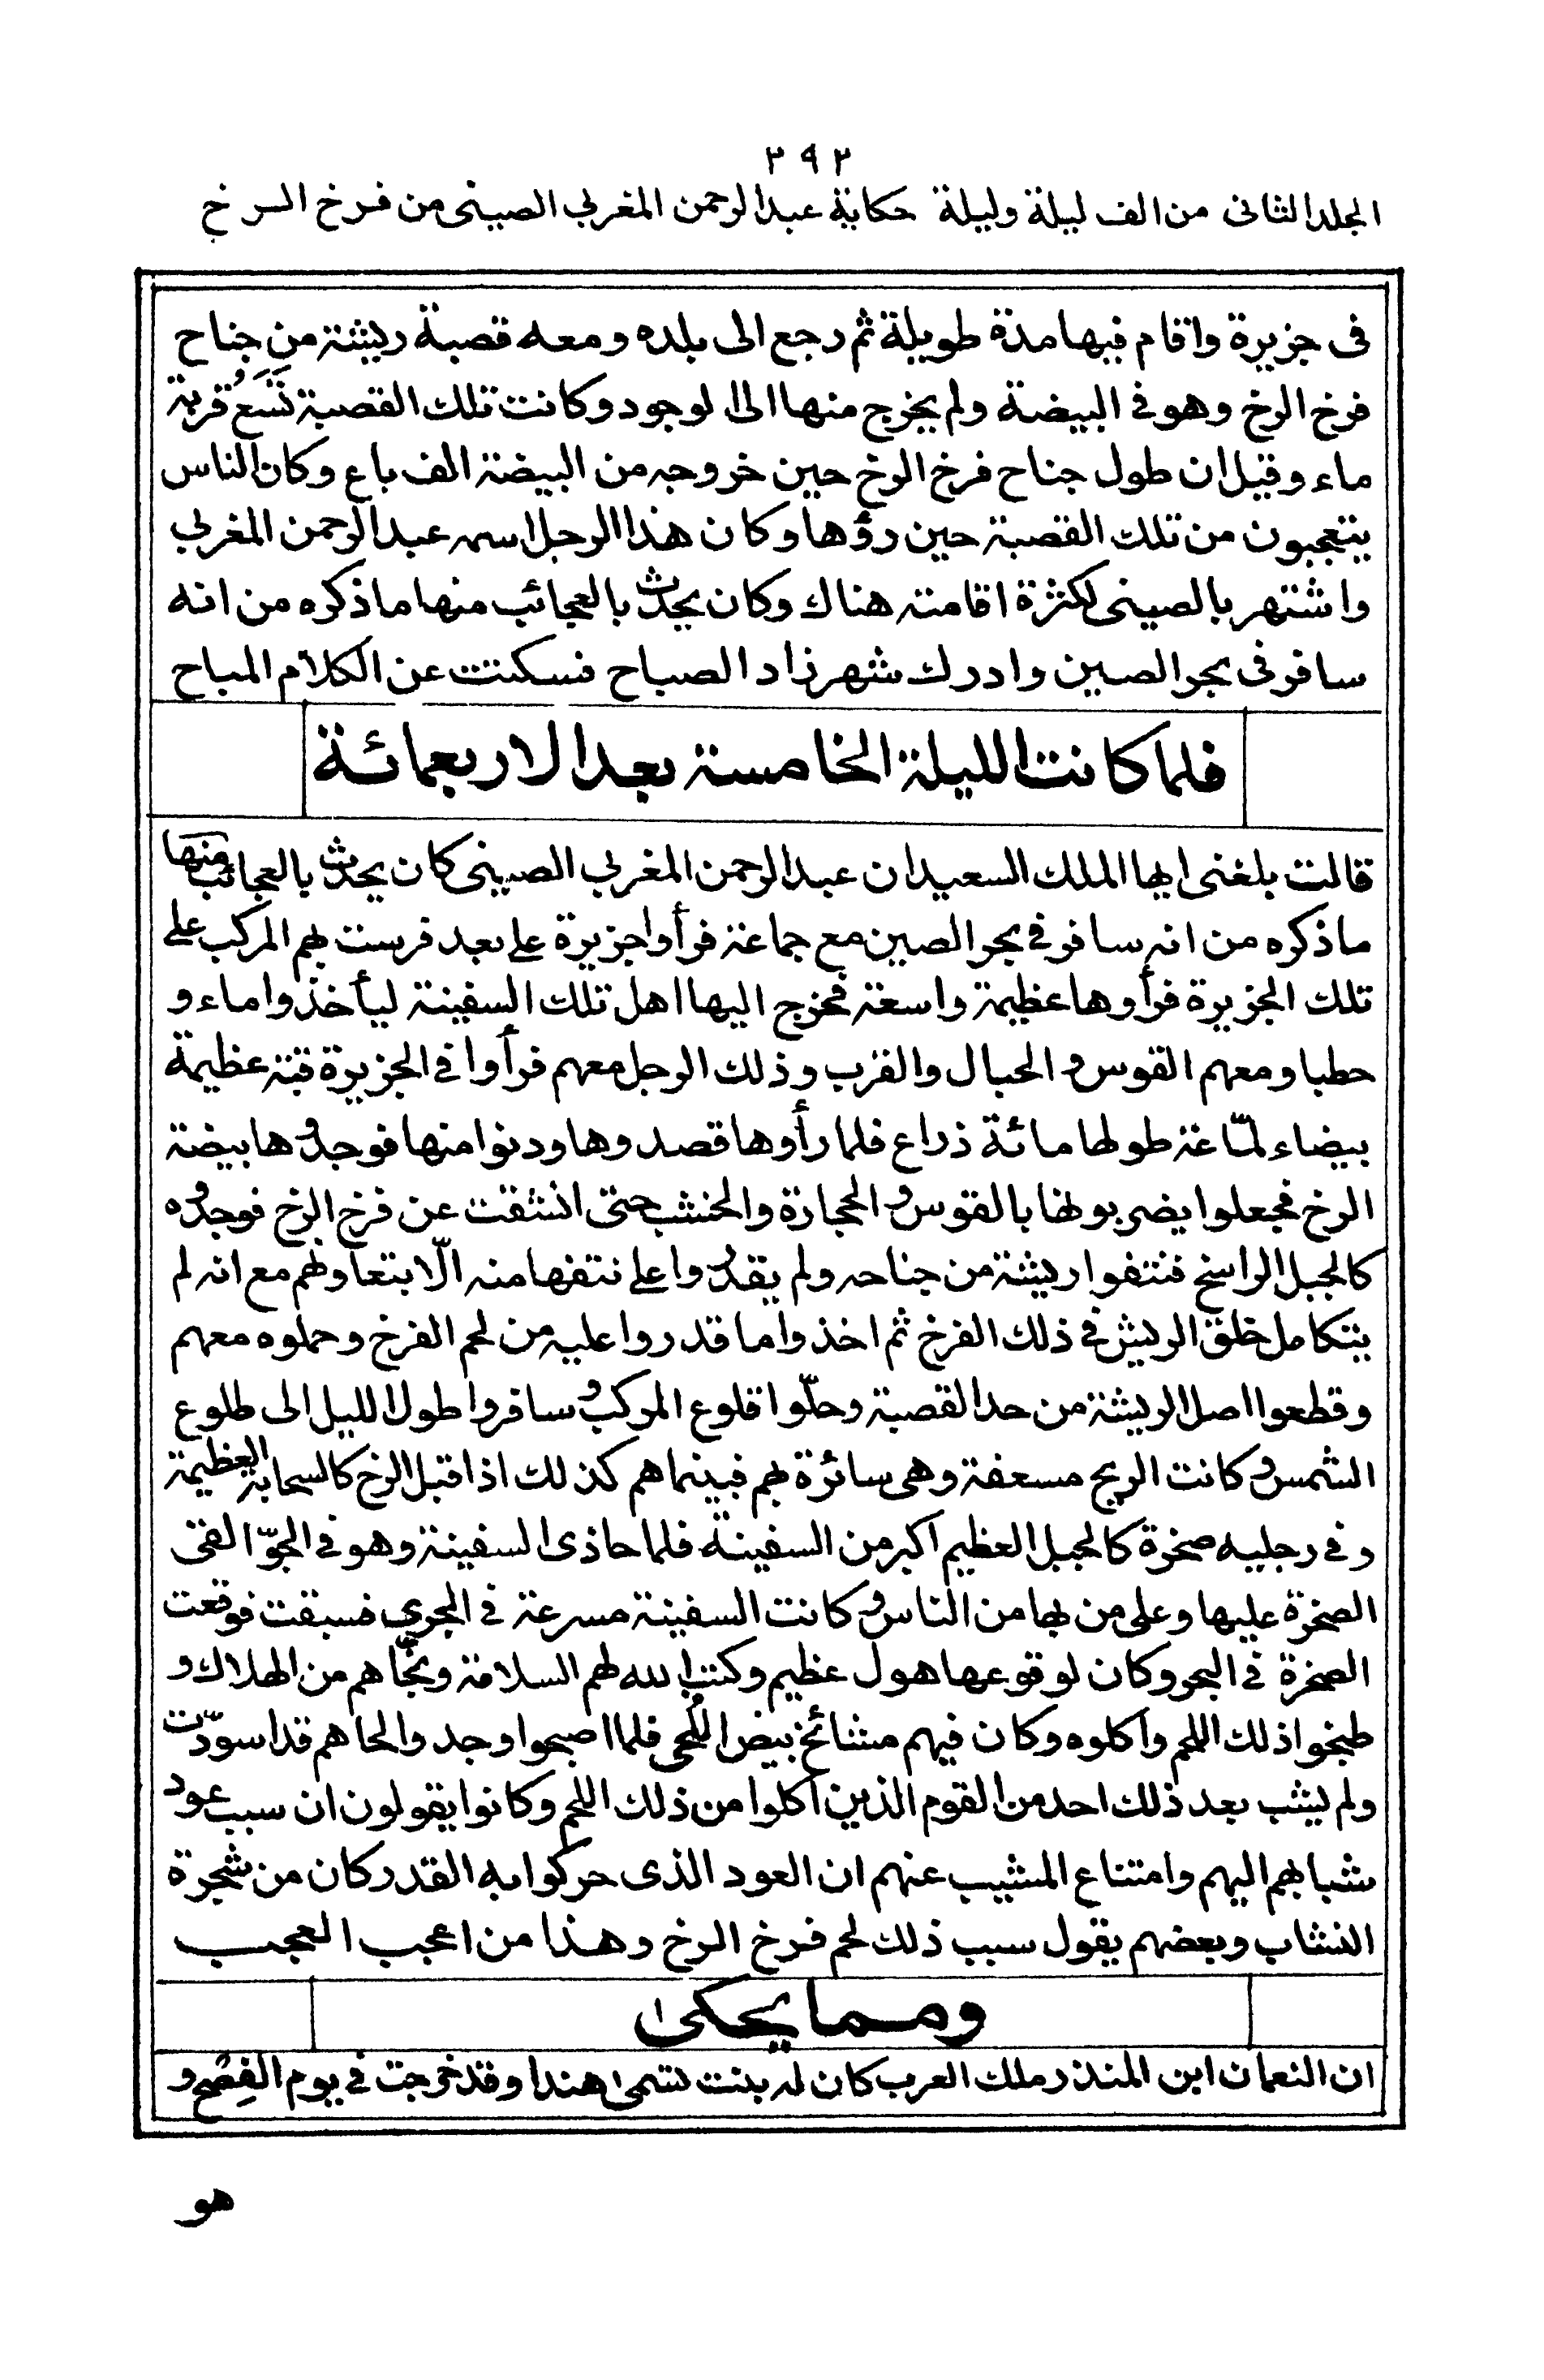 ٣٩٢
المجلد الثانى من الف ليلة وليلة حكاية عبد الرحمن المغربي الصينى من فرخ الرخ
فى جزيرة واقام فيها مدة طويلة ثم رجع الى بلده ومعه قصبة ريشة من جناح
فرخ الرخ وهو فى البيضة ولم يخرج منها الى الوجود وكانت تلك القصبة تَسَعُ قربة
ماء وقيل ان طول جناح فرخ الرخ حين خروجه من البيضة الف باع وكان الناس
يتعجبون من تلك القصبة حين رؤها وكان هذا الرجل اسمه عبد الرحمن المغربي
واشتهر بالصينى لكثرة اقامته هناك وكان يحدث بالعجائب منها ما ذكره من انه
سافر فى بحر الصين وادرك شهرزاد الصباح فسكتت عن الكلام المباح
فلما كانت الليلة الخامسة بعد الاربعمائة
قالت بلغنى ايها الملك السعيد ان عبد الرحمن المغربي الصينى كان يحدث بالعجائب منها
ما ذكره من انه سافر فى بحر الصين مع جماعة فرأوا جزيرة على بعد فرست بهم المركب على
تلك الجزيرة فرأوها عظيمة واسعة فخرج اليها اهل تلك السفينة ليأخذوا ماء و
حطبا ومعهم القوس و الحبال والقرب وذلك الرجل معهم فرأوا فى الجزيرة قبة عظيمة
بيضاء لمّاعة طولها مائة ذراع فلما رأوها قصدوها ودنوا منها فوجدوها بيضة
الرخ فجعلوا يضربونها بالقوس و الحجارة والخشب حتى انشقت عن فرخ الرخ فوجدوه
كالجبل الراسخ فنتفوا ريشة من جناحه ولم يقدروا على نتفها منه الّا بتعاونهم مع انه لم
يتكامل خلق الريش فى ذلك الفرخ ثم اخذوا ما قدروا عليه من لحم الفرخ وحملوه معهم
وقطعوا اصل الريشة من حد القصبة وحلّوا قلوع المركب و سافروا طول الليل الى طلوع
الشمس و كانت الريح مسعفة وهى سائرة بهم فبينما هم كذلك اذ اقبل الرخ كالسحابة العظيمة
وفى رجليه صخرة كالجبل العظيم اكبر من السفينة فلما حاذى السفينة وهو فى الجوّ القى
الصخرة عليها وعلى من بها من الناس و كانت السفينة مسرعة فى الجري فسبقت فوقعت
الصخرة فى البحر وكان لوقوعها هول عظيم وكتب الله لهم السلامة ونجّاهم من الهلاك و
طبخوا ذلك اللحم واكلوه وكان فيهم مشائخ بيض اللُّحى فلما اصبحوا وجدوا لحاهم قد اسودّت
ولم يشب بعد ذلك احد من القوم الذين اكلوا من ذلك اللحم وكانوا يقولون ان سبب عود
شبابهم اليهم وامتناع المشيب عنهم ان العود الذى حركوا به القدر كان من شجرة
النشاب وبعضهم يقول سبب ذلك لحم فرخ الرخ وهذا من اعجب العجب
ومما يحكى
ان النعمان ابن المنذر ملك العرب كان له بنت تسمى هندا وقد خرجت فى يوم الفِصْح و
هو